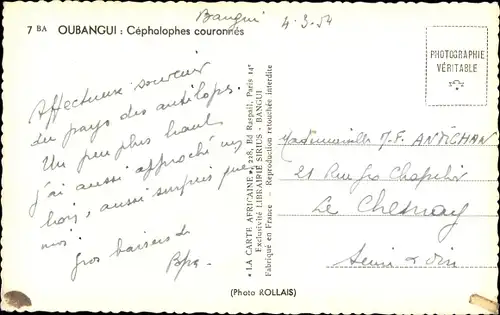 Bangui 4.3.54
7 BA OUBANGUI : Céphalophes couronnés
PHOTOGRAPHIE
VÉRITABLE
Affectueux souvenir
du pays des antilopes.
Un peu plus haut
j'ai aussi approché un
lion, aussi surpris que
moi
Gros baisers de
Papa
"LA CARTE AFRICAINE", 218, Bd Raspail, Paris 14e
Exclusivité LIBRAIRIE SIRIUS - BANGUI
Fabriqué en France - Reproduction retouchée interdite
Mademoiselle J-F. ANTICHAN
21 Rue
Le Chesnay
Seine & Oise
(Photo ROLLAIS)